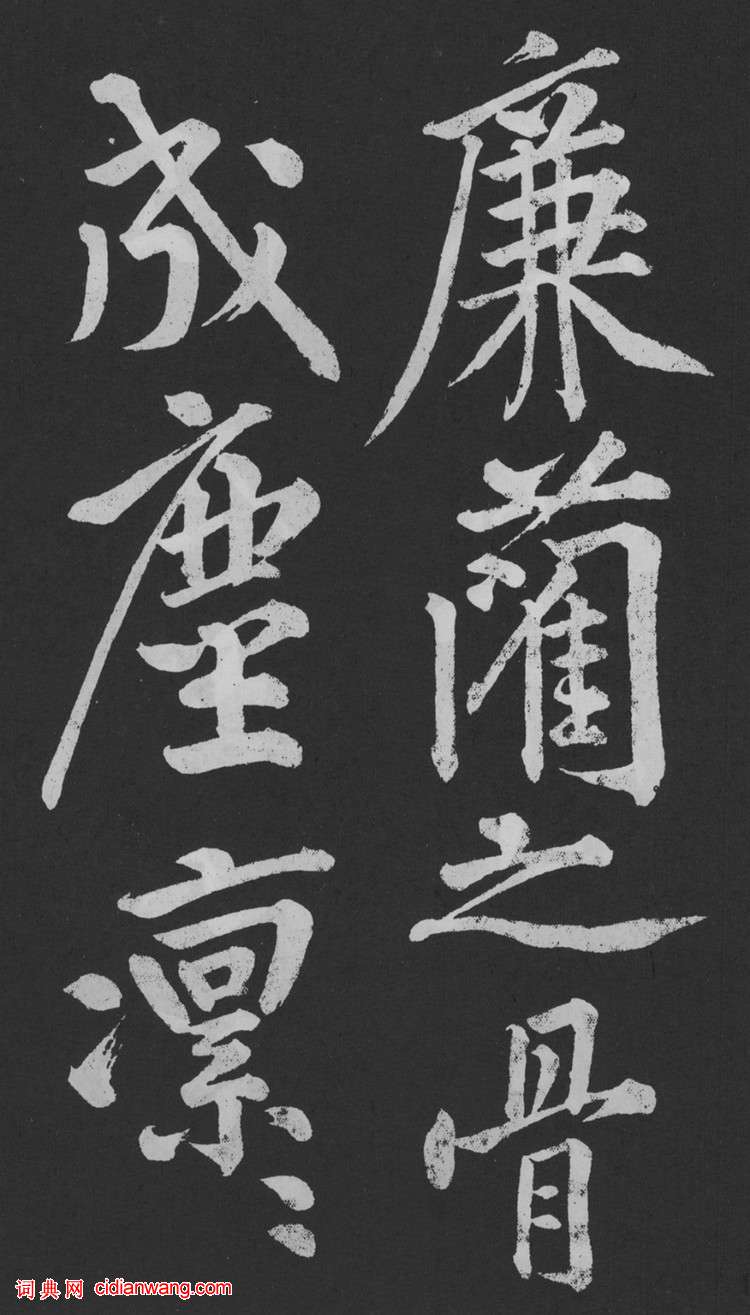 廉藺之骨
成塵凛〻
词典网 cidianwang.com